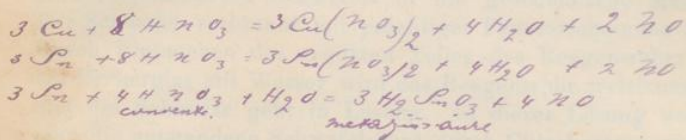 3 Cu + 8 H NO3 = 3 Cu(NO3)2 + 4 H2O + 2 NO
3 Sn + 8 H NO3 = 3 Sn(NO3)2 + 4 H2O + 2 NO
3 Sn + 4 H NO3 + H2O = 3 H2 SnO3 + 4 NO
metazinnsäure